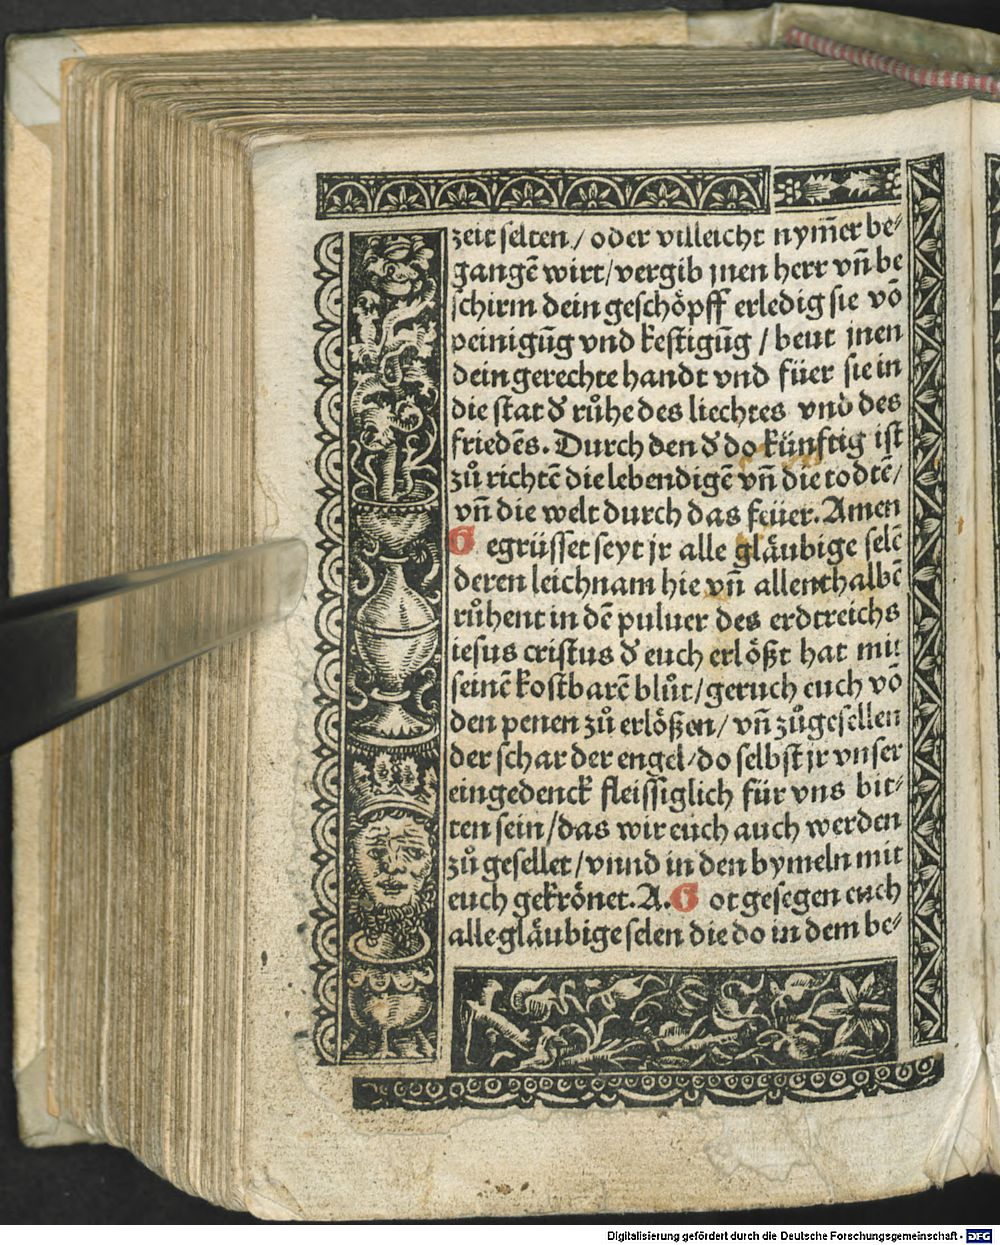 zeit selten / oder villeicht nym̄er be⸗
gangē wirt/vergib jnen herr vn̄ be
schirm dein geschöpff erledig sie vō
peinigūg vnd kestigūg / beut jnen
dein gerechte handt vnd füer sie in
die stat d' růhe des liechtes vnd des
friedēs. Durch den d' do künftig ist
zů richtē die lebendigē vn̄ die todtē/
vn̄ die welt durch das feüer. Amen
Gegrüsset seyt jr alle gläubige selē
deren leichnam hie vn̄ allenthalbē
růhent in dē puluer des erdtreichs
iesus cristus d' euch erlößt hat mit
seinē kostbarē blůt/geruch euch vō
den penen zů erlößen/ vn̄ zůgesellen
der schar der engel/do selbst jr vnser
eingedenck fleissiglich für vns bit⸗
ten sein/das wir euch auch werden
zů gesellet/vnnd in den hymeln mit
euch gekrönet. A. Got gesegen euch
alle gläubige selen die do in dem be⸗
Digitalisierung gefördert durch die Deutsche Forschungsgemeinschaft - DFG